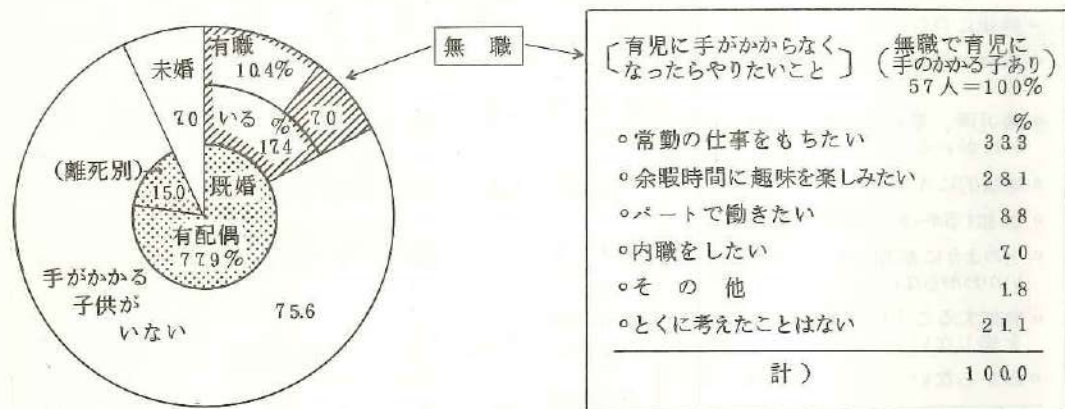 有職
10.4%
未婚
7.0
いる %
17.4
7.0
(離死別)
15.0
既婚
有配偶
77.9%
手がかかる
子供が
いない
75.6
無 職
〔育児に手がかからなく
なったらやりたいこと〕
(無職で育児に
手のかかる子あり)
57人=100%
%
○常勤の仕事をもちたい 33.3
○余暇時間に趣味を楽しみたい 28.1
○パートで働きたい 8.8
○内職をしたい 7.0
○そ の 他 1.8
○とくに考えたことはない 21.1
計) 100.0